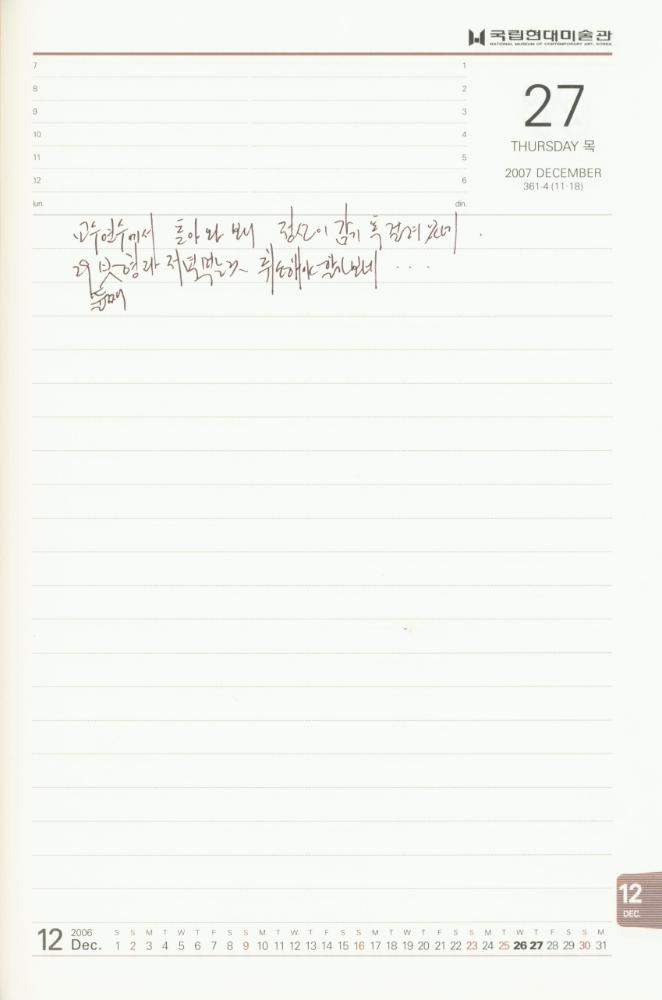 국립현대미술관
NATIONAL MUSEUM OF CONTEMPORARY ART, KOREA
7 1
8 2
9 3
10 4
11 5
12 6
lun. din.
27
THURSDAY 목
2007 DECEMBER
361-4 (11·18)
교수연수에서 돌아와 보니 정신이 감기 독
저녁먹는 취소해야
둘째
12
DEC.
12 2006 Dec.
S S M T W T F S S M T W T F S S M T W T F S S M T W T F S S M
1 2 3 4 5 6 7 8 9 10 11 12 13 14 15 16 17 18 19 20 21 22 23 24 25 26 27 28 29 30 31